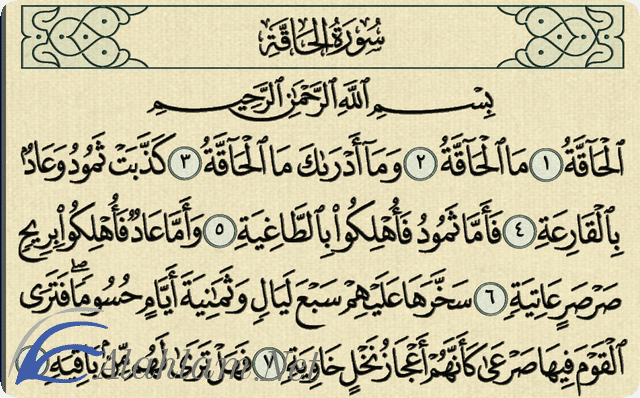 سُورَةُ الحَاقَّةِ
بِسْمِ ٱللَّهِ ٱلرَّحْمَٰنِ ٱلرَّحِيمِ
ٱلْحَآقَّةُ ١ مَا ٱلْحَآقَّةُ ٢ وَمَآ أَدْرَىٰكَ مَا ٱلْحَآقَّةُ ٣ كَذَّبَتْ ثَمُودُ وَعَادٌۢ
بِٱلْقَارِعَةِ ٤ فَأَمَّا ثَمُودُ فَأُهْلِكُوا۟ بِٱلطَّاغِيَةِ ٥ وَأَمَّا عَادٌ فَأُهْلِكُوا۟ بِرِيحٍ
صَرْصَرٍ عَاتِيَةٍ ٦ سَخَّرَهَا عَلَيْهِمْ سَبْعَ لَيَالٍ وَثَمَٰنِيَةَ أَيَّامٍ حُسُومًا ۖ فَتَرَى
ٱلْقَوْمَ فِيهَا صَرْعَىٰ كَأَنَّهُمْ أَعْجَازُ نَخْلٍ خَاوِيَةٍ ٧ فَهَلْ تَرَىٰ لَهُم مِّنۢ بَاقِيَةٍ
Alahlam.Net